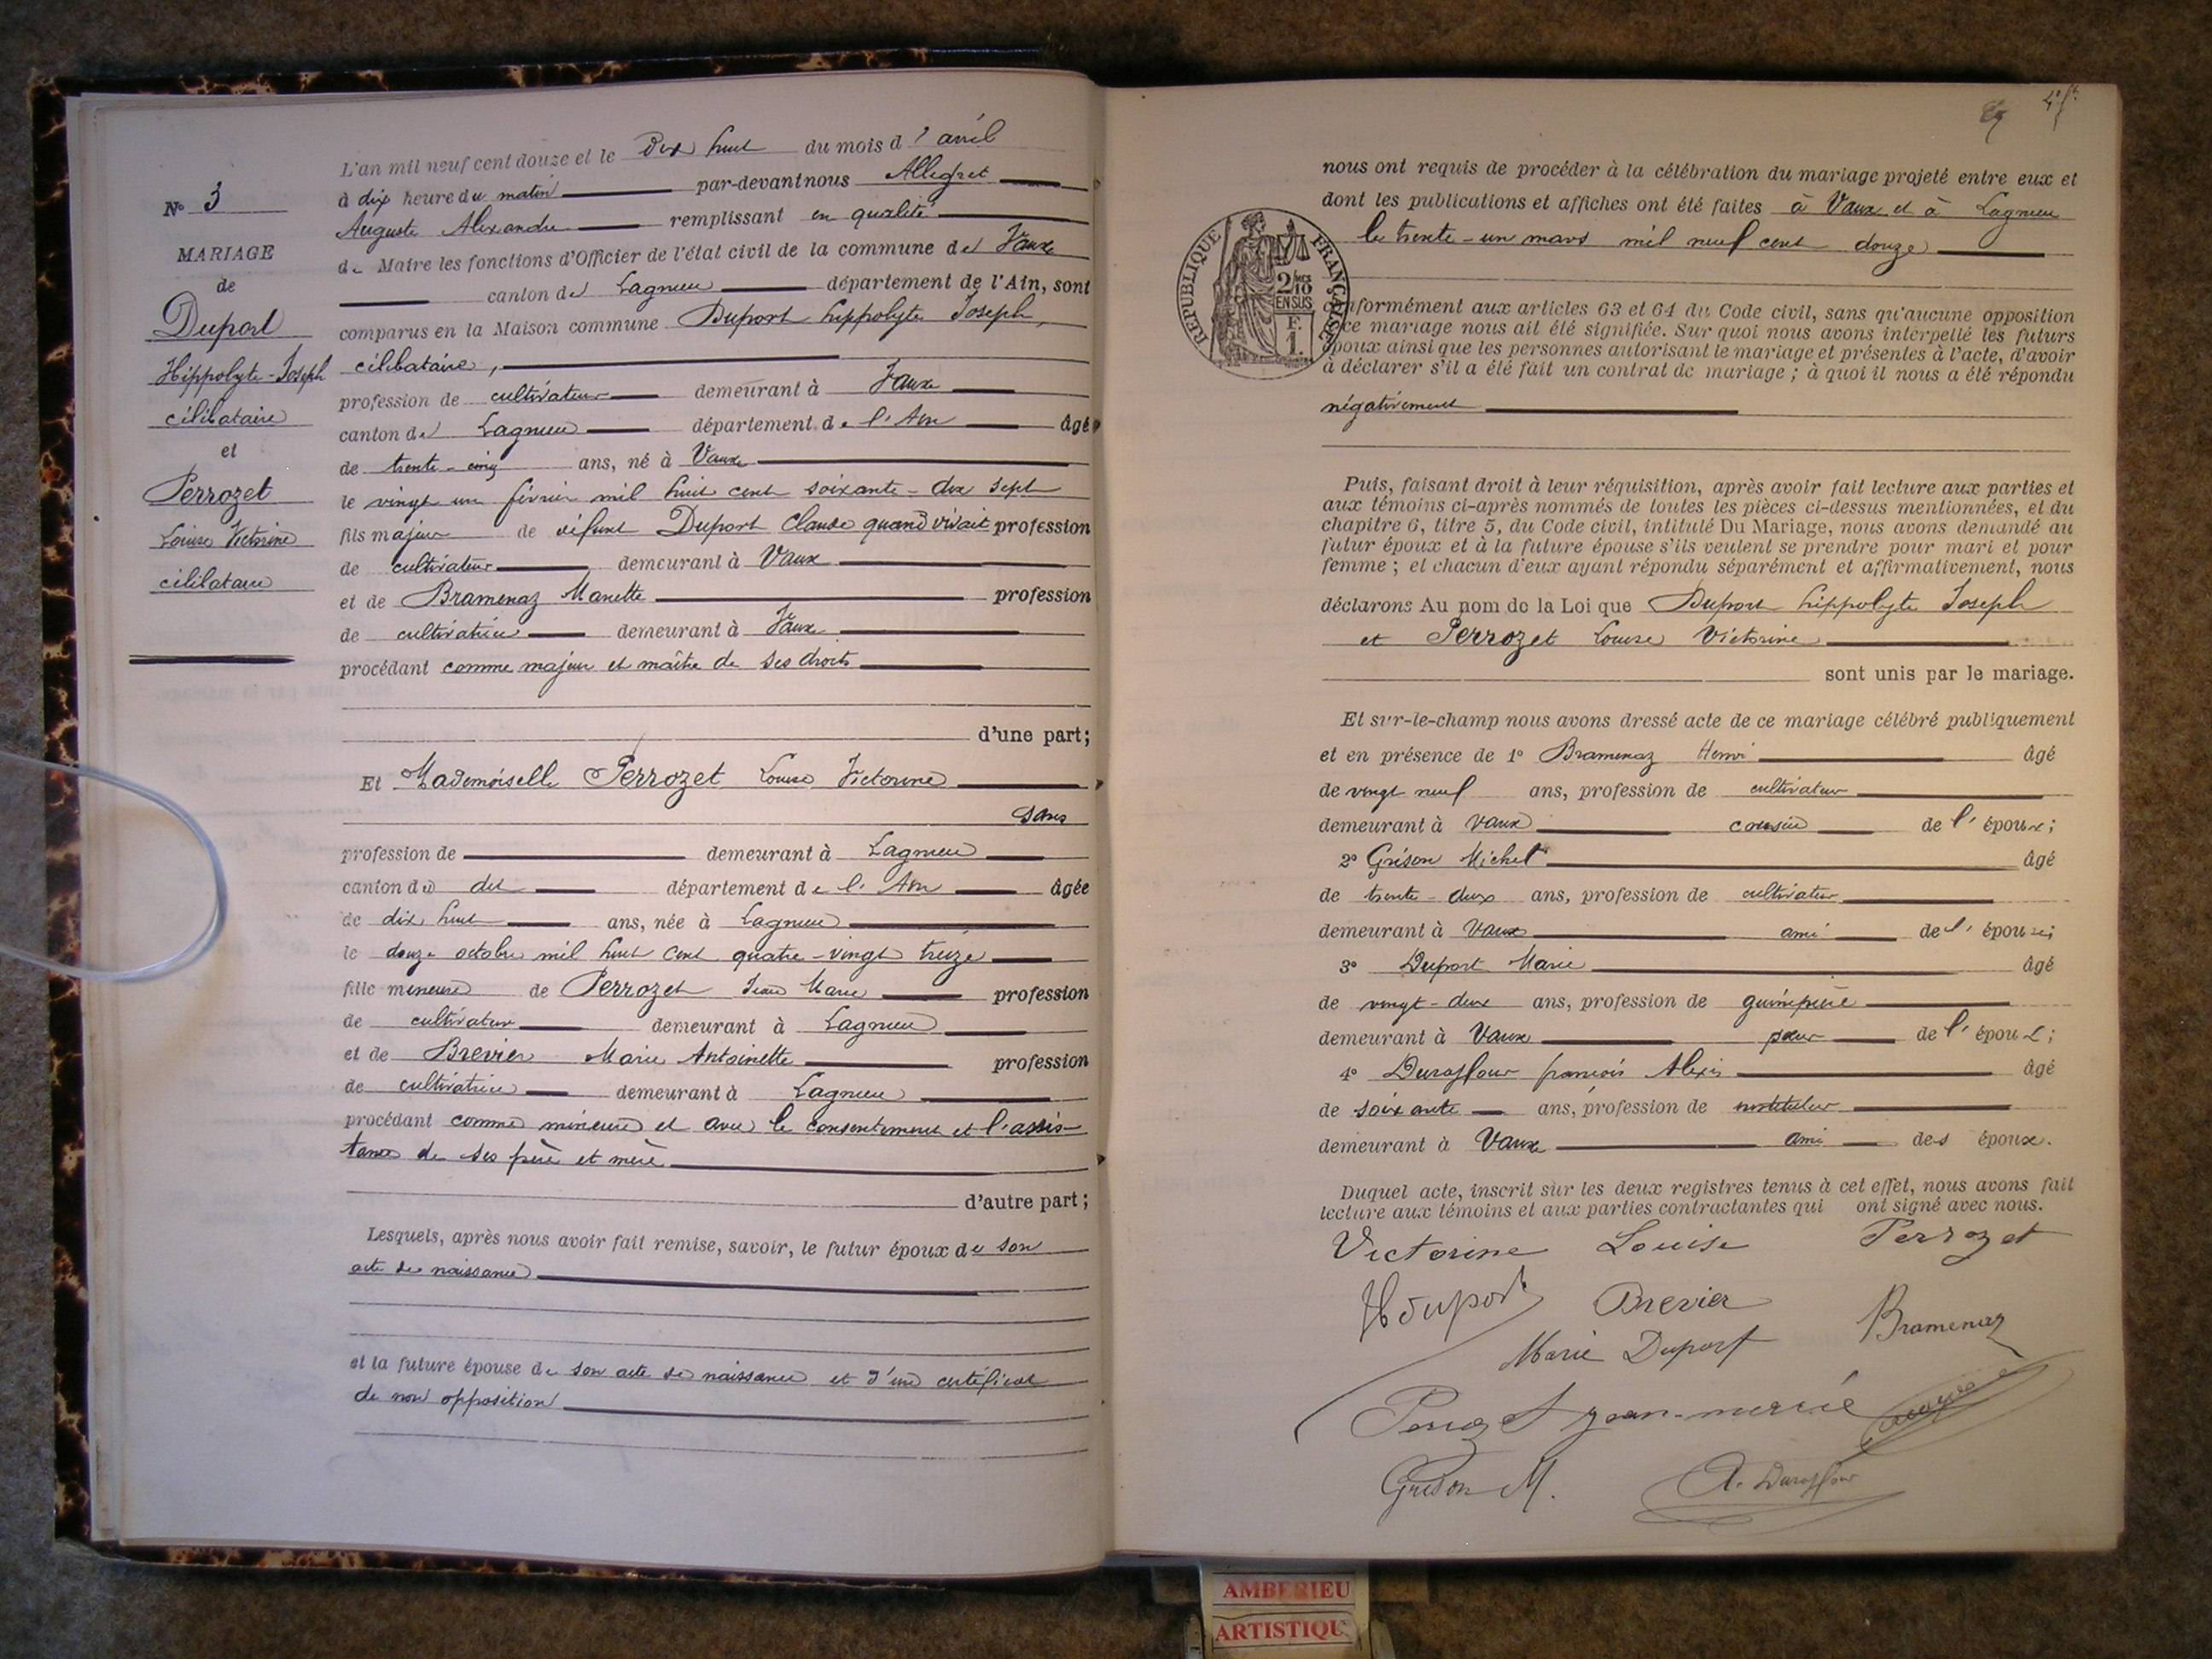 N° 3
MARIAGE
de
Duport
Hippolyte-Joseph
célibataire
et
Perrozet
Louise Victorine
célibataire
L'an mil neuf cent douze et le Dix huit du mois d'avril
à dix heure du matin par-devant nous Allegret
Auguste Alexandre remplissant en qualité
de Maire les fonctions d'Officier de l'état civil de la commune de Vaux
canton de Lagnieu département de l'Ain, sont
comparus en la Maison commune Duport hippolyte Joseph,
célibataire,
profession de cultivateur demeurant à Vaux
canton de Lagnieu département de l'Ain âgé
de trente-cinq ans, né à Vaux
le vingt un février mil huit cent soixante-dix sept
fils majeur de défunt Duport Claude quand vivait profession
de cultivateur demeurant à Vaux
et de Bramenaz Manette profession
de cultivatrice demeurant à Vaux
procédant comme majeur et maître de ses droits
d'une part;
Et Mademoiselle Perrozet Louise Victorine
sans
profession de demeurant à Lagnieu
canton du dit département de l'Ain âgée
de dix huit ans, née à Lagnieu
le douze octobre mil huit cent quatre-vingt treize
fille mineure de Perrozet Jean Marie profession
de cultivateur demeurant à Lagnieu
et de Brevier Marie Antoinette profession
de cultivatrice demeurant à Lagnieu
procédant comme mineure et avec le consentement et l'assis-
tance de ses père et mère
d'autre part;
Lesquels, après nous avoir fait remise, savoir, le futur époux de son
acte de naissance
et la future épouse de son acte de naissance et d'un certificat
de non opposition
nous ont requis de procéder à la célébration du mariage projeté entre eux et
dont les publications et affiches ont été faites à Vaux et à Lagnieu
le trente-un mars mil neuf cent douze
RÉPUBLIQUE FRANÇAISE
2/10
EN SUS
F.
1.
conformément aux articles 63 et 64 du Code civil, sans qu'aucune opposition
à ce mariage nous ait été signifiée. Sur quoi nous avons interpellé les futurs
époux ainsi que les personnes autorisant le mariage et présentes à l'acte, d'avoir
à déclarer s'il a été fait un contrat de mariage; à quoi il nous a été répondu
négativement
Puis, faisant droit à leur réquisition, après avoir fait lecture aux parties et
aux témoins ci-après nommés de toutes les pièces ci-dessus mentionnées, et du
chapitre 6, titre 5, du Code civil, intitulé Du Mariage, nous avons demandé au
futur époux et à la future épouse s'ils veulent se prendre pour mari et pour
femme; et chacun d'eux ayant répondu séparément et affirmativement, nous
déclarons Au nom de la Loi que Duport hippolyte Joseph
et Perrozet Louise Victorine
sont unis par le mariage.
Et sur-le-champ nous avons dressé acte de ce mariage célébré publiquement
et en présence de 1° Bramenaz Henri âgé
de vingt neuf ans, profession de cultivateur
demeurant à Vaux cousin de l'époux;
2° Grison Michel âgé
de trente-deux ans, profession de cultivateur
demeurant à Vaux ami de l'époux;
3° Duport Marie âgé
de vingt-deux ans, profession de guimpière
demeurant à Vaux sœur de l'époux;
4° Durafour françois Alexis âgé
de soixante ans, profession de instituteur
demeurant à Vaux ami des époux.
Duquel acte, inscrit sur les deux registres tenus à cet effet, nous avons fait
lecture aux témoins et aux parties contractantes qui ont signé avec nous.
Victorine Louise Perrozet
H Duport Brevier
Marie Duport Bramenaz
Perrozet jean-marie
Grison M. A. Durafour
AMBERIEU
ARTISTIQU